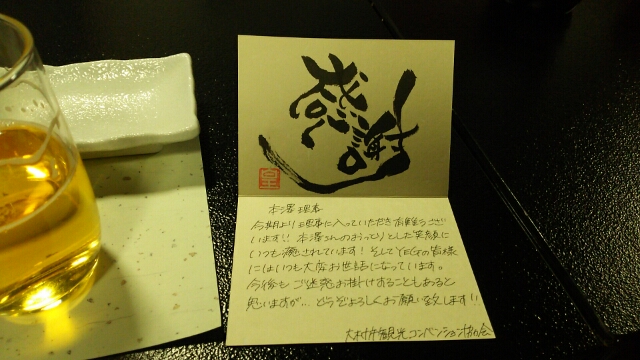 感謝
本澤理事
今期より理事に入っていただき有難うござ
います!! 本澤さんのおっとりとした笑顔に
いつも癒されています! そしてYEGの皆様
にはいつも大変お世話になっています。
今後もご迷惑お掛けすることもあると
思いますが… どうぞよろしくお願い致します!!
観光コンベンション協会